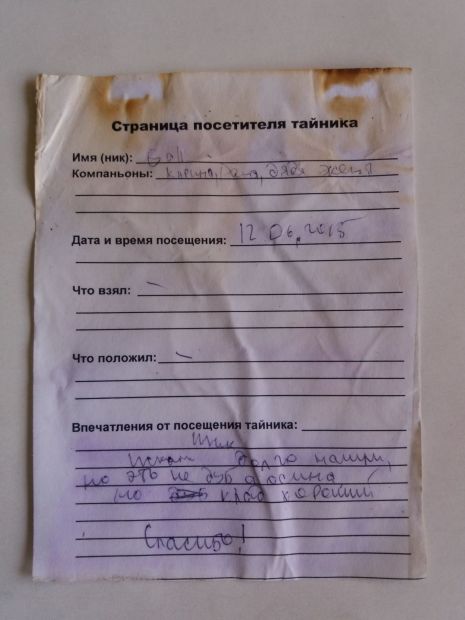 Страница посетителя тайника
Имя (ник): Gall
Компаньоны: Карина, дядя Женя
Дата и время посещения: 12 06, 2015
Что взял: –
Что положил: –
Впечатления от посещения тайника:
Шик
Искали долго нашли,
но это не дуб а осина
но клад хороший
Спасибо!